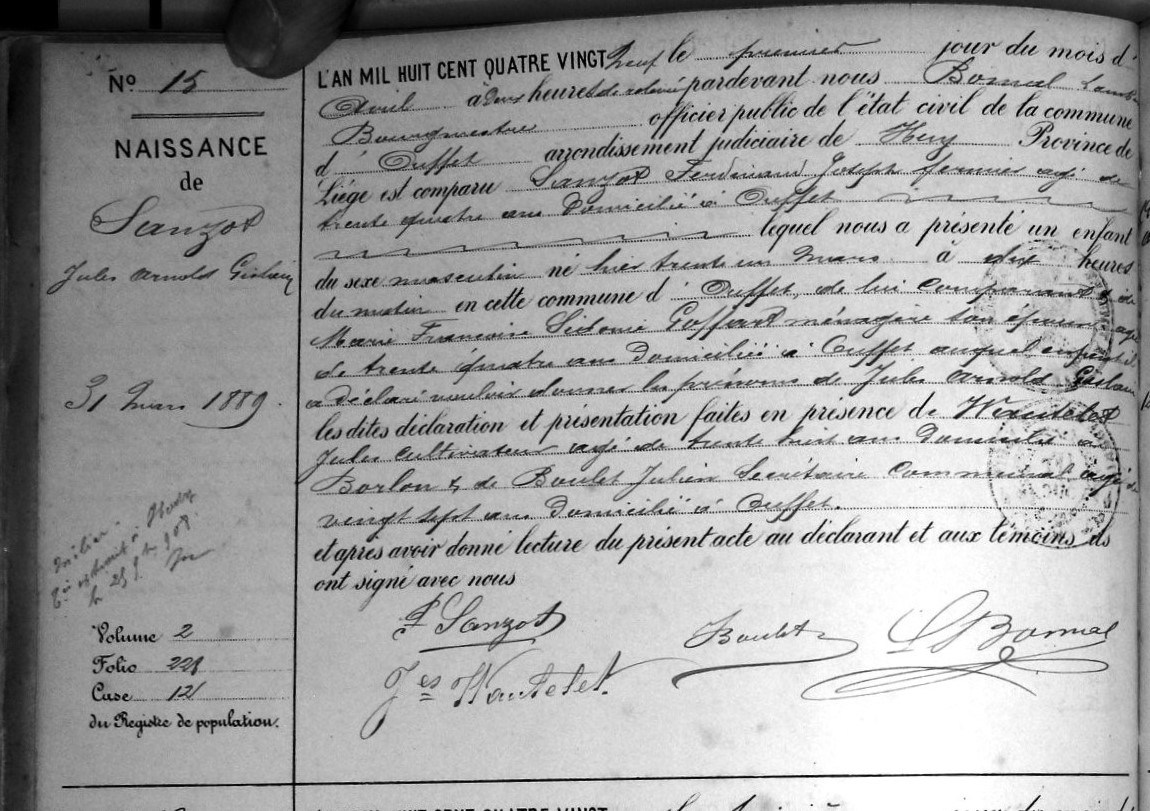 No 15
NAISSANCE
de
Sanzot
Jules Arnold Gislain
31 Mars 1889.
Milicien
Volume 2
Folio 221
Case 12
du Registre de population.
L'AN MIL HUIT CENT QUATRE VINGT Neuf le premier jour du mois d'
Avril à deux heures de relevé pardevant nous Bonmal Lambert
Bourgmestre officier public de l'état civil de la commune
d' Ouffet arrondissement judiciaire de Huy Province de
Liége est comparu Sanzot Ferdinand Joseph fermier agé de
trente quatre ans domicilié à Ouffet
lequel nous a présenté un enfant
du sexe masculin né hier trente un Mars à dix heures
du matin en cette commune d' Ouffet, de lui comparant & de
Marie Françoise Sidonie Goffart ménagère son épouse agée
de trente quatre ans domiciliée à Ouffet auquel enfant il
a déclaré vouloir donner les prénoms de Jules Arnold Gislain
les dites déclaration et présentation faites en présence de Wautelet
Jules cultivateur agé de trente huit ans domicilié à
Borlon & de Boulet Julien Secrétaire Communal agé de
vingt sept ans domicilié à Ouffet.
et après avoir donné lecture du présent acte au déclarant et aux témoins ils
ont signé avec nous
F Sanzot Boulet L Bonmal
Jes Wautelet